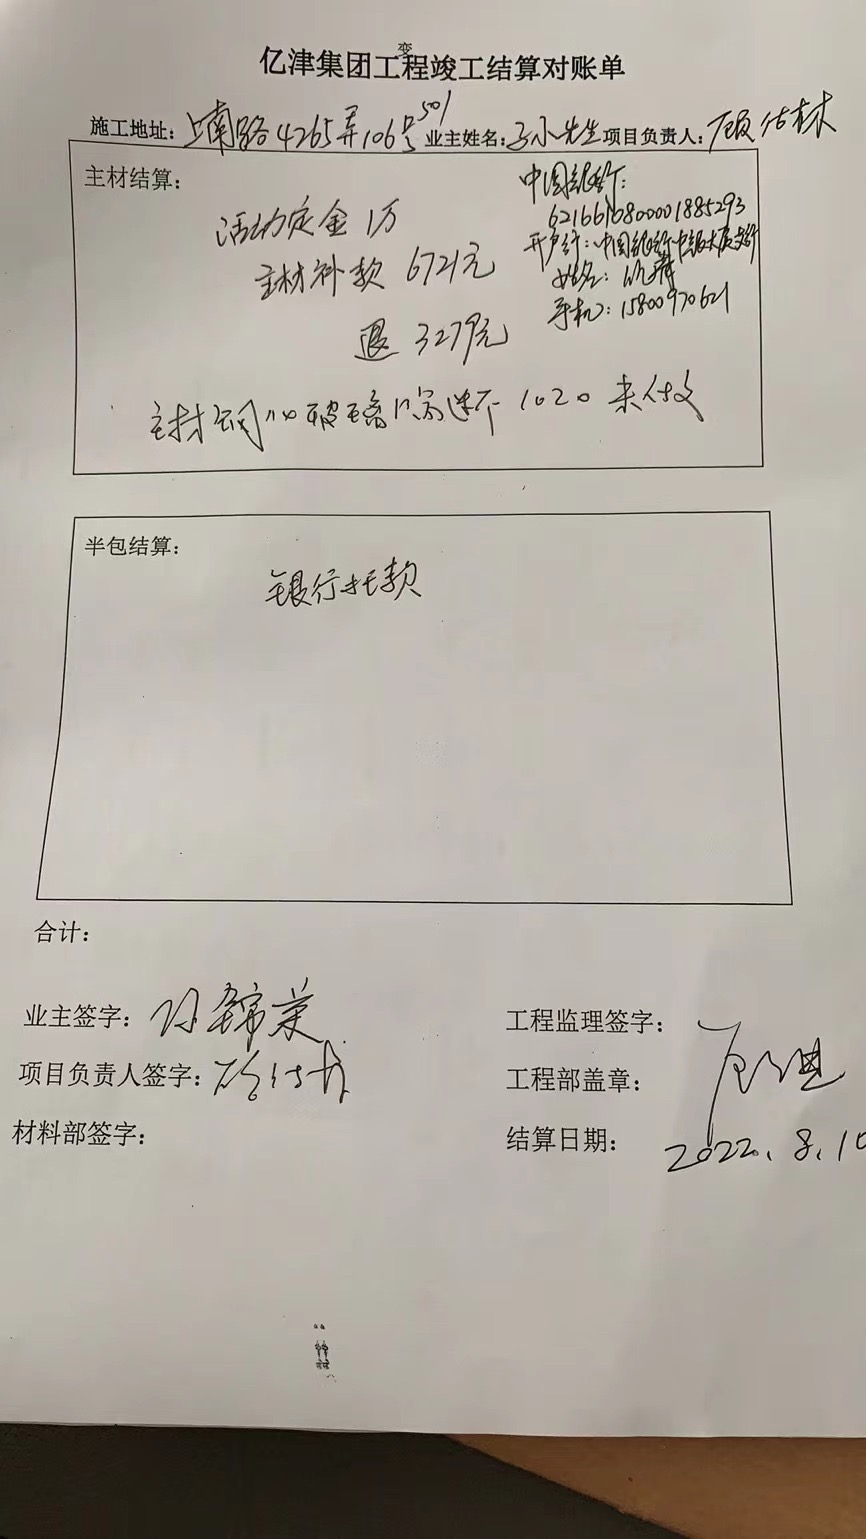 变
亿津集团工程竣工结算对账单
施工地址：上南路4265弄106号501 业主姓名：孙先生 项目负责人：顾佑林
主材结算：
中国银行：
6216610800001885293
开户行：中国银行
姓名：
手机：15800970621
活动定金1万
主材补款 6721元
退 3279元
主材 玻璃 1020 未付
半包结算：
银行托款
合计：
业主签字：孙锦荣
项目负责人签字：
材料部签字：
工程监理签字：
工程部盖章：
结算日期：2022.8.10